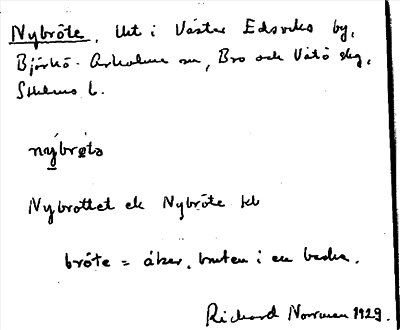 Nybröte, Utt i Väster Edsviks by,
Björkö-Arholma sn, Bro och Vätö skg,
Sthlms l.
nybrøtə
Nybrottet el. Nybröte
bröte = åker, bruten i en backe.
Richard Norrman 1929.